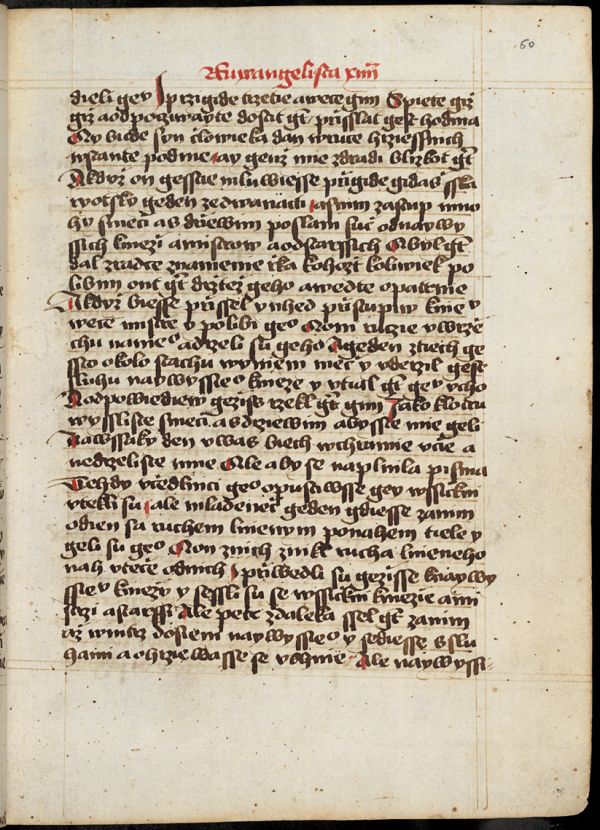 50
Ewangelista xiiii
dieli gey I przigide trzetie a wece gim Spiete giz
giz a odpocziwayte dosit gt prisslat gest hodina
Ay bude syn clowieka dan w ruce hrziessnich
wstante podme ay genz mie zdradi blizkot gt
A kdyz on gesstie mluwiesse prigide gidas ska
ryotsky geden ze dwanacti a s nim zastup mno
hy s meci a s drzewim poslani suc od naywy
ssich kniezi a mistrow a od starssich A byl gt
dal zradce znamenie rka kohozt koliwiek po
libim ont gt drztez geho a wedte opatrnie
A kdyz biesse prissel y hned pristupiw knie y
wece mistre y polibi geo A oni rucie vwrze
chu nan eo a drzeli su geho A geden z tiech ge
ssto okolo stachu wyniem mec y vderzil gest
sluhu naywyssieo knieze y vtial gt gey vcho
A odpowiediew gezis rzekl gt gim Jako k lotru
wyssliste s meci a s drziewim abyste mie geli
na wssaky den v was biech w chramie vcie a
nedrzeliste mne Ale aby se naplnila pisma
Tehdy vcedlnici geo opustiwsse gey wssickni
vtekli su ale mladenec geden gdiesse za nim
odien sa ruchem lnienym po nahem tiele y
geli su geo A on z nich zmkl rucha lnieneho
nah vtece od nich I priwedli su gezisse k naywy
ssieu kniezy y sessli su se wssickni kniezie a mi
strzi a starssi Ale petr z daleka ssel gt za nim
az w nitrz do sieni naywyssieo y sediesse s slu
hami a ohrziewasse se v ohnie Ale naywyssi